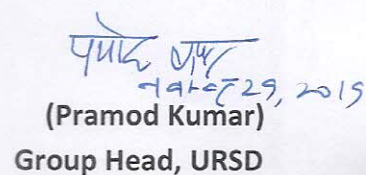 प्रमोद कुमार
29, 2019
(Pramod Kumar)
Group Head, URSD